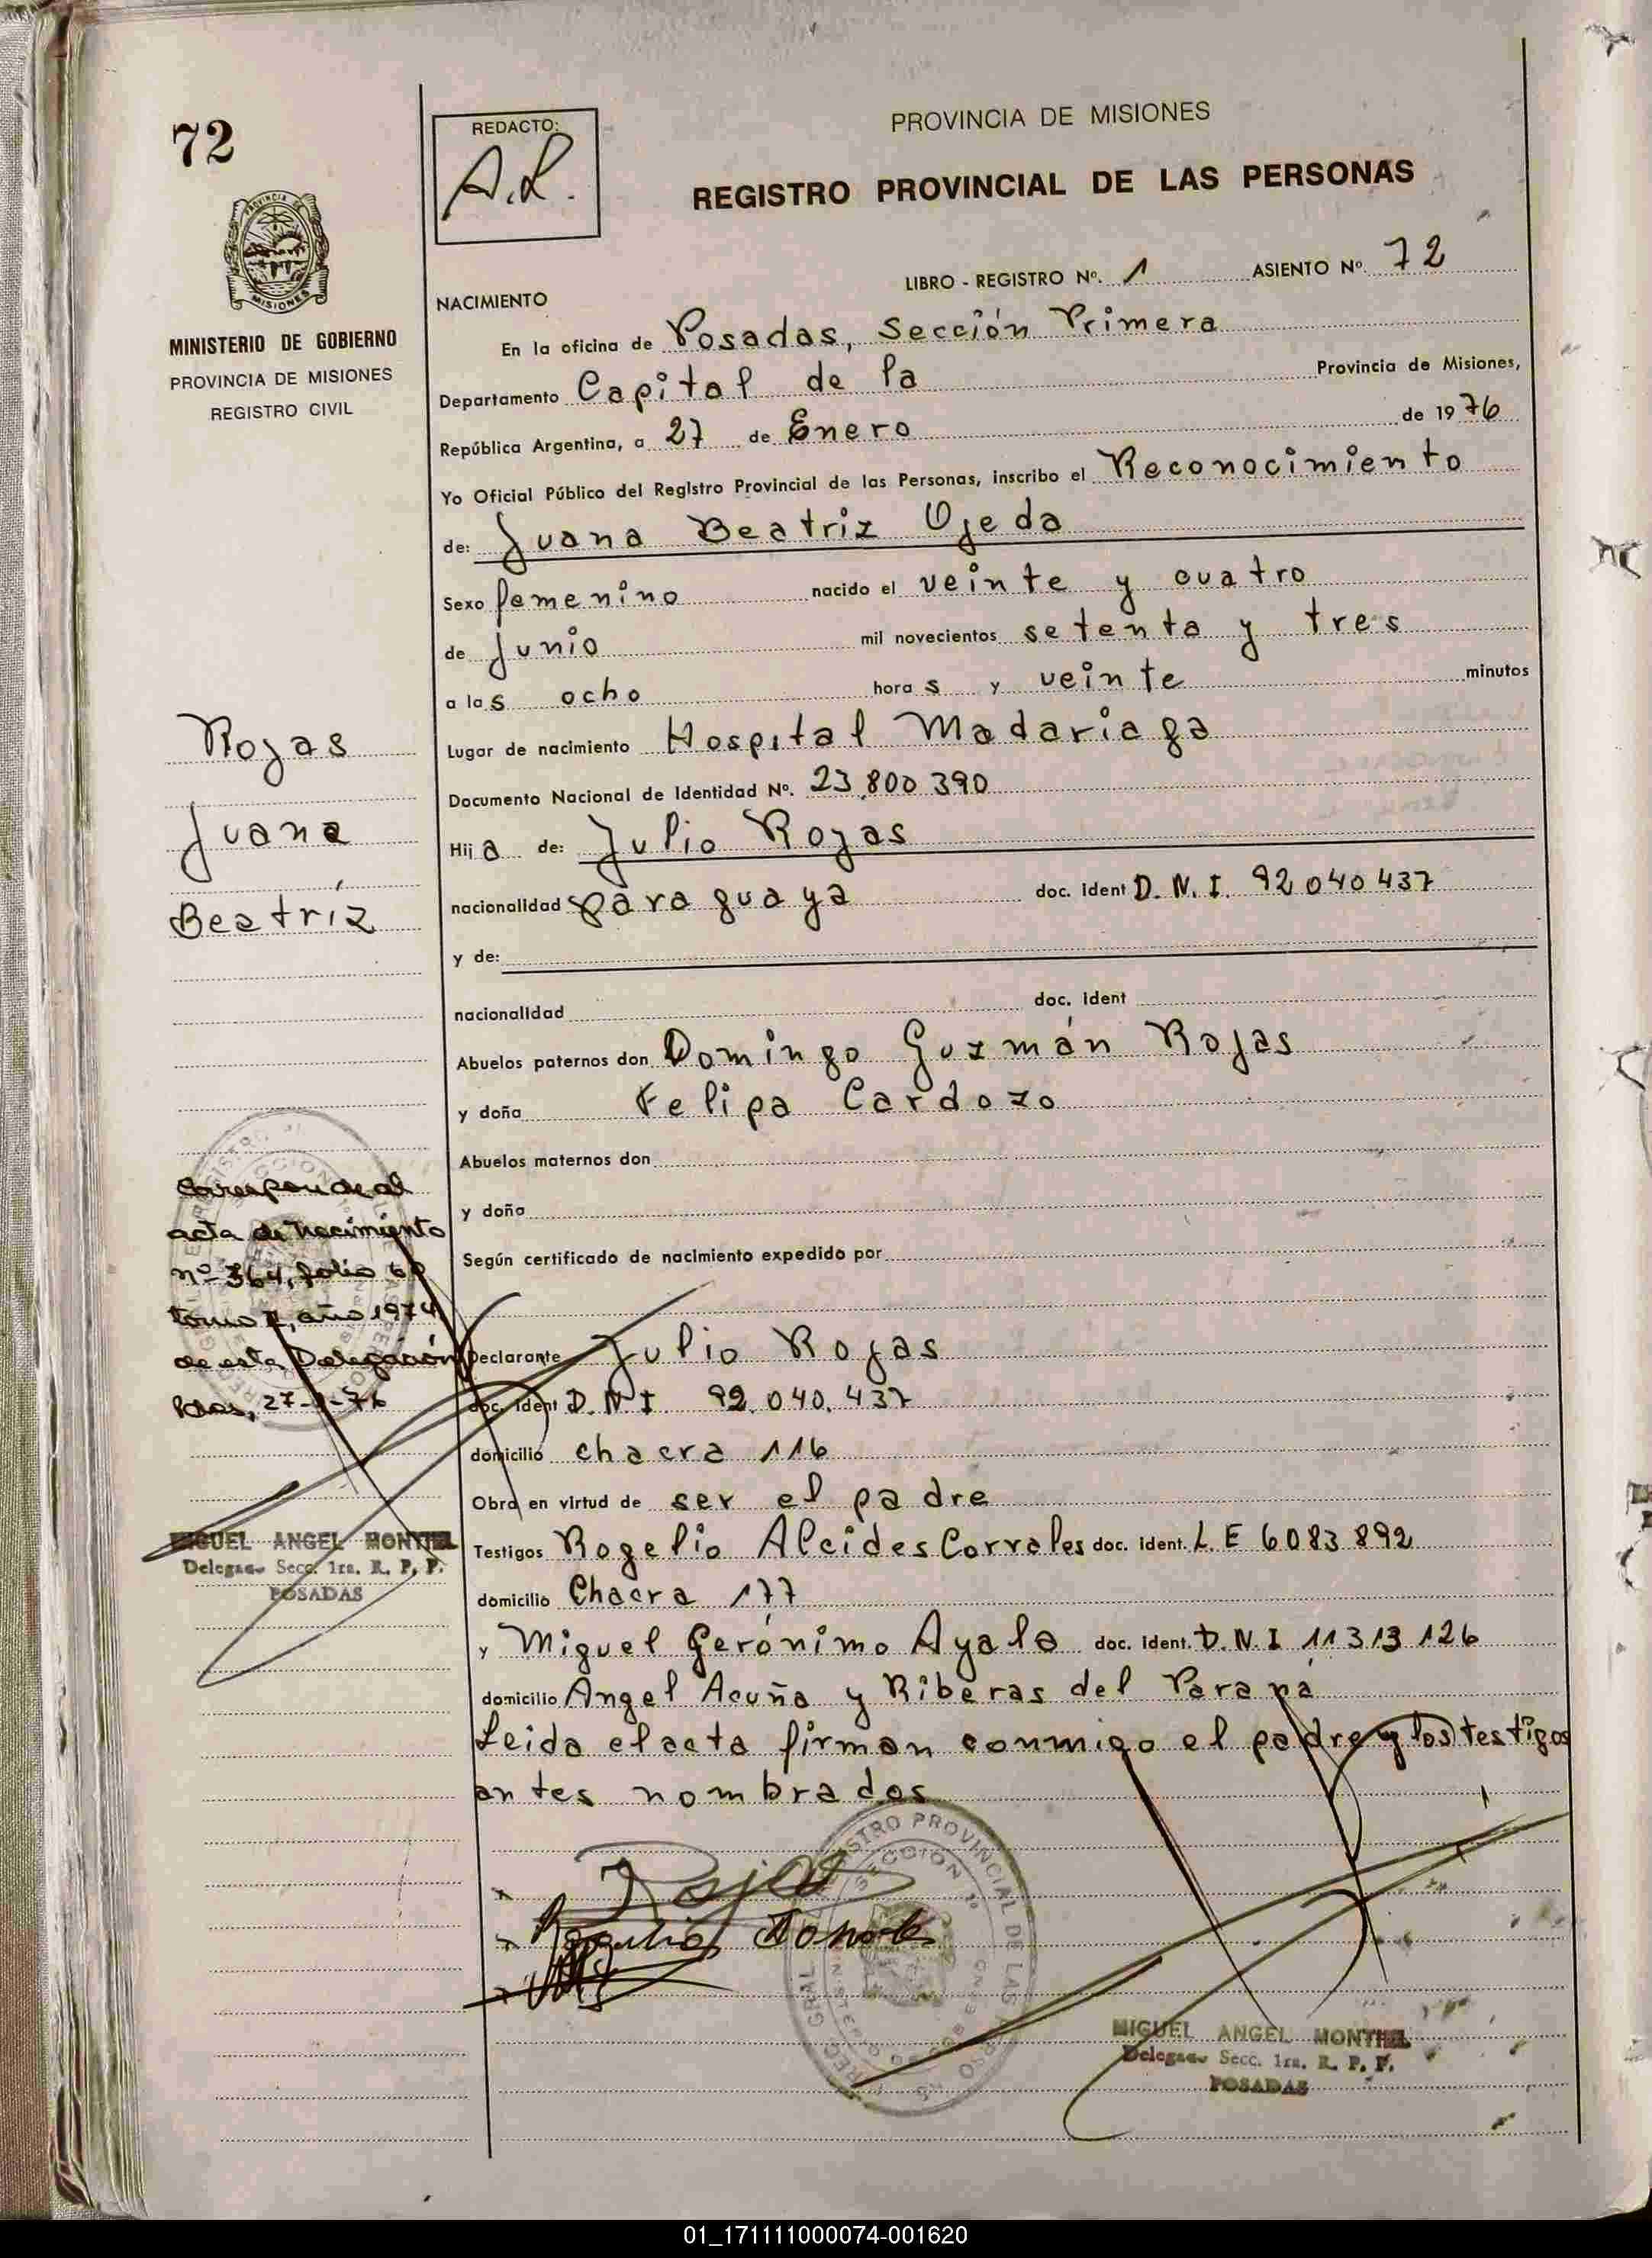 72
REDACTO:
A.L.
PROVINCIA DE MISIONES
REGISTRO PROVINCIAL DE LAS PERSONAS
MISIONES
MINISTERIO DE GOBIERNO
PROVINCIA DE MISIONES
REGISTRO CIVIL
LIBRO - REGISTRO Nº. 1 ASIENTO Nº. 72
NACIMIENTO
En la oficina de Posadas, Sección Primera
Departamento Capital de la Provincia de Misiones,
República Argentina, a 27 de Enero de 1976
Yo Oficial Público del Registro Provincial de las Personas, inscribo el Reconocimiento
de: Juana Beatriz Ojeda
Sexo femenino nacido el veinte y cuatro
de Junio mil novecientos setenta y tres
a las ocho horas y veinte minutos
Lugar de nacimiento Hospital Madariaga
Documento Nacional de Identidad Nº. 23.800 390
Hija de: Julio Rojas
nacionalidad paraguaya doc. ident D. N. I. 92 040 437
y de:
nacionalidad doc. ident
Abuelos paternos don Domingo Guzmán Rojas
y doña Felipa Cardozo
Abuelos maternos don
y doña
Según certificado de nacimiento expedido por
Declarante Julio Rojas
doc. ident D. N. I 92.040.437
domicilio chacra 116
Obra en virtud de ser el padre
Testigos Rogelio Alcides Corrales doc. ident. L. E 6083 892
domicilio Chacra 177
y Miguel Gerónimo Ayala doc. ident. D. N. I 11 313 126
domicilio Angel Acuña y Riberas del Paraná
Leida el acta firman conmigo el padre y los testigos
antes nombrados
Rojas
Juana
Beatríz
Corresponde al
acta de Nacimiento
nº 364, folio
tomo año 1974
de esta Delegación
Pdas, 27-1-76
MIGUEL ANGEL MONTIEL
Delegado Secc. 1ra. R. P. P.
POSADAS
Rojas
REGISTRO PROVINCIAL DE LAS
SECCION 1ª
MIGUEL ANGEL MONTIEL
Delegado Secc. 1ra. R. P. P.
POSADAS
01_171111000074-001620